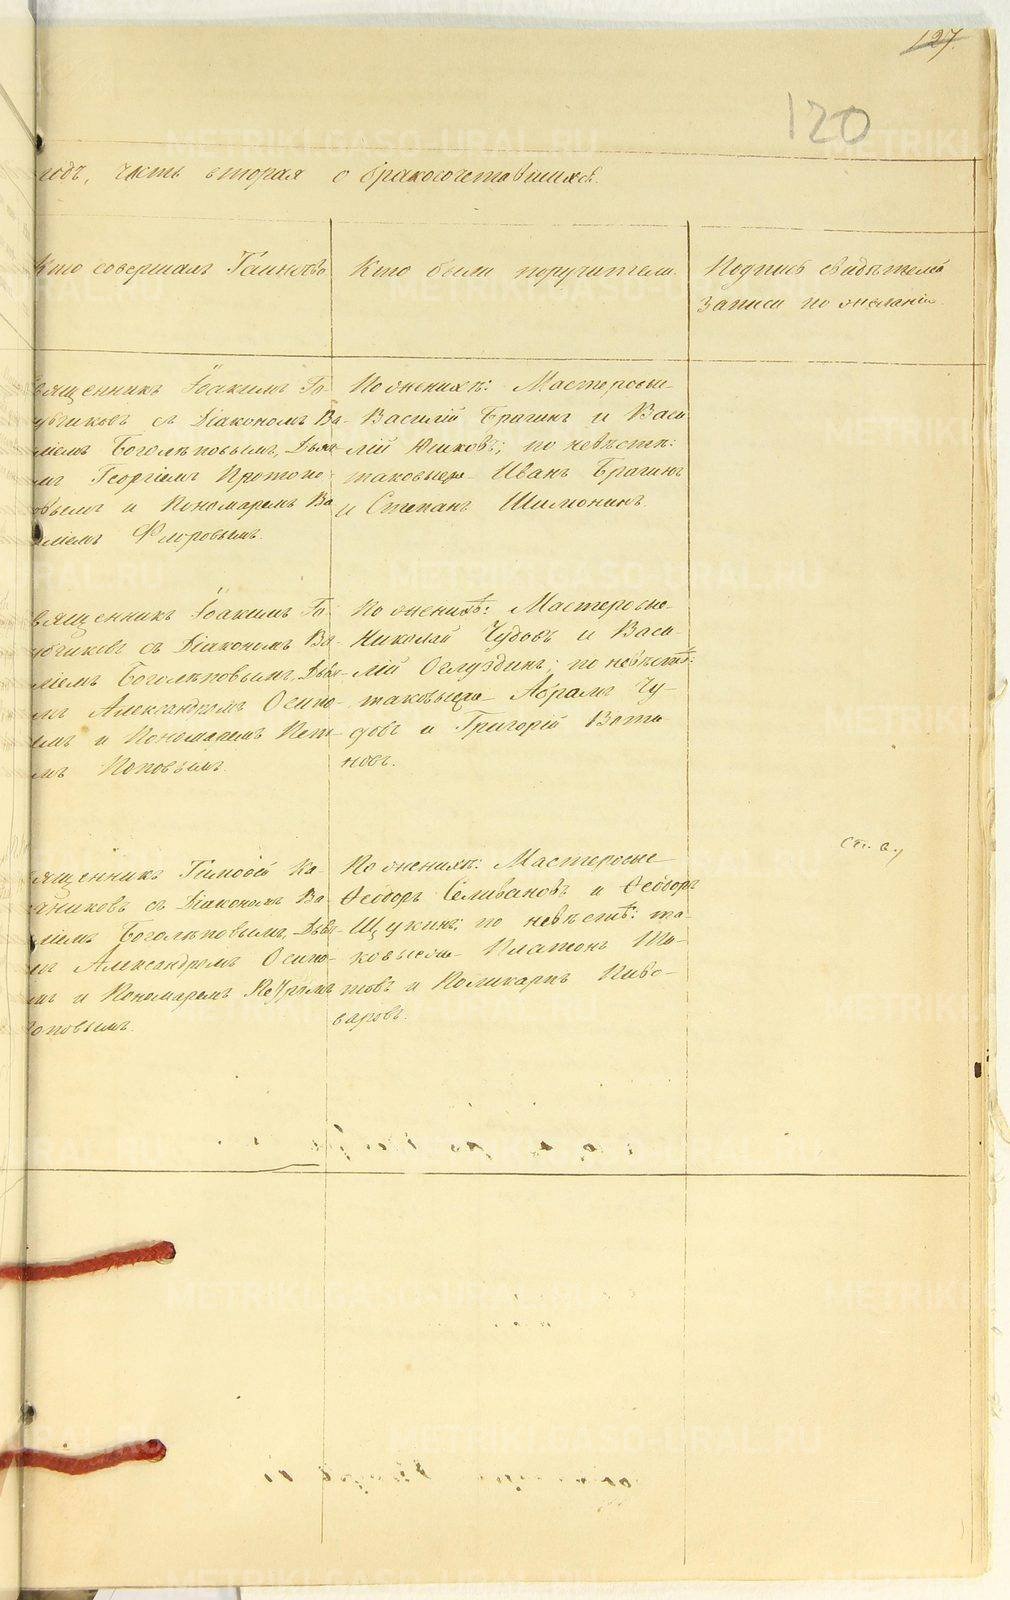 127.
120
годъ, часть вторая о бракосочетавшихся.
Кто совершалъ Таинство
Кто были поручители.
Подпись свидѣтелей
записи по желанію.
Священникъ Іоакимъ Го-
лубчиковъ съ Діакономъ Ва-
силіемъ Боголѣповымъ, Дьяч-
комъ Георгіемъ Протопо-
повымъ и Пономаремъ Ва
силіемъ Флоровымъ.
По женихѣ: Мастеровые
Василій Брагинъ и Васи
лій Юшковъ; по невѣстѣ:
таковыеже Иванъ Брагинъ
и Степанъ Шилюнинъ.
вященникъ Іоакимъ Го-
лубчиковъ съ Діакономъ Ва-
силіемъ Боголѣповымъ, Дьяч-
комъ Александромъ Осипо-
вымъ и Пономаремъ Пет-
ромъ Поповымъ.
По женихѣ: Мастеровые
Николай Чудовъ и Васи-
лій Ослудинъ; по невѣстѣ:
таковыеже Абрамъ Чу-
довъ и Григорій Вотя
новъ.
вященникъ Тимофей Ка-
никовъ съ Діакономъ Ва
силіемъ Боголѣповымъ, Дьяч-
комъ Александромъ Осипо-
вымъ и Пономаремъ Петромъ
Поповымъ.
По женихѣ: Мастеровые
Ѳеодоръ Селивановъ и Ѳеодоръ
Щукинъ; по невѣстѣ: та-
ковыеже Платонъ
товъ и Поликарпъ Пиво-
варовъ.
METRIKI.GASO-URAL.RU